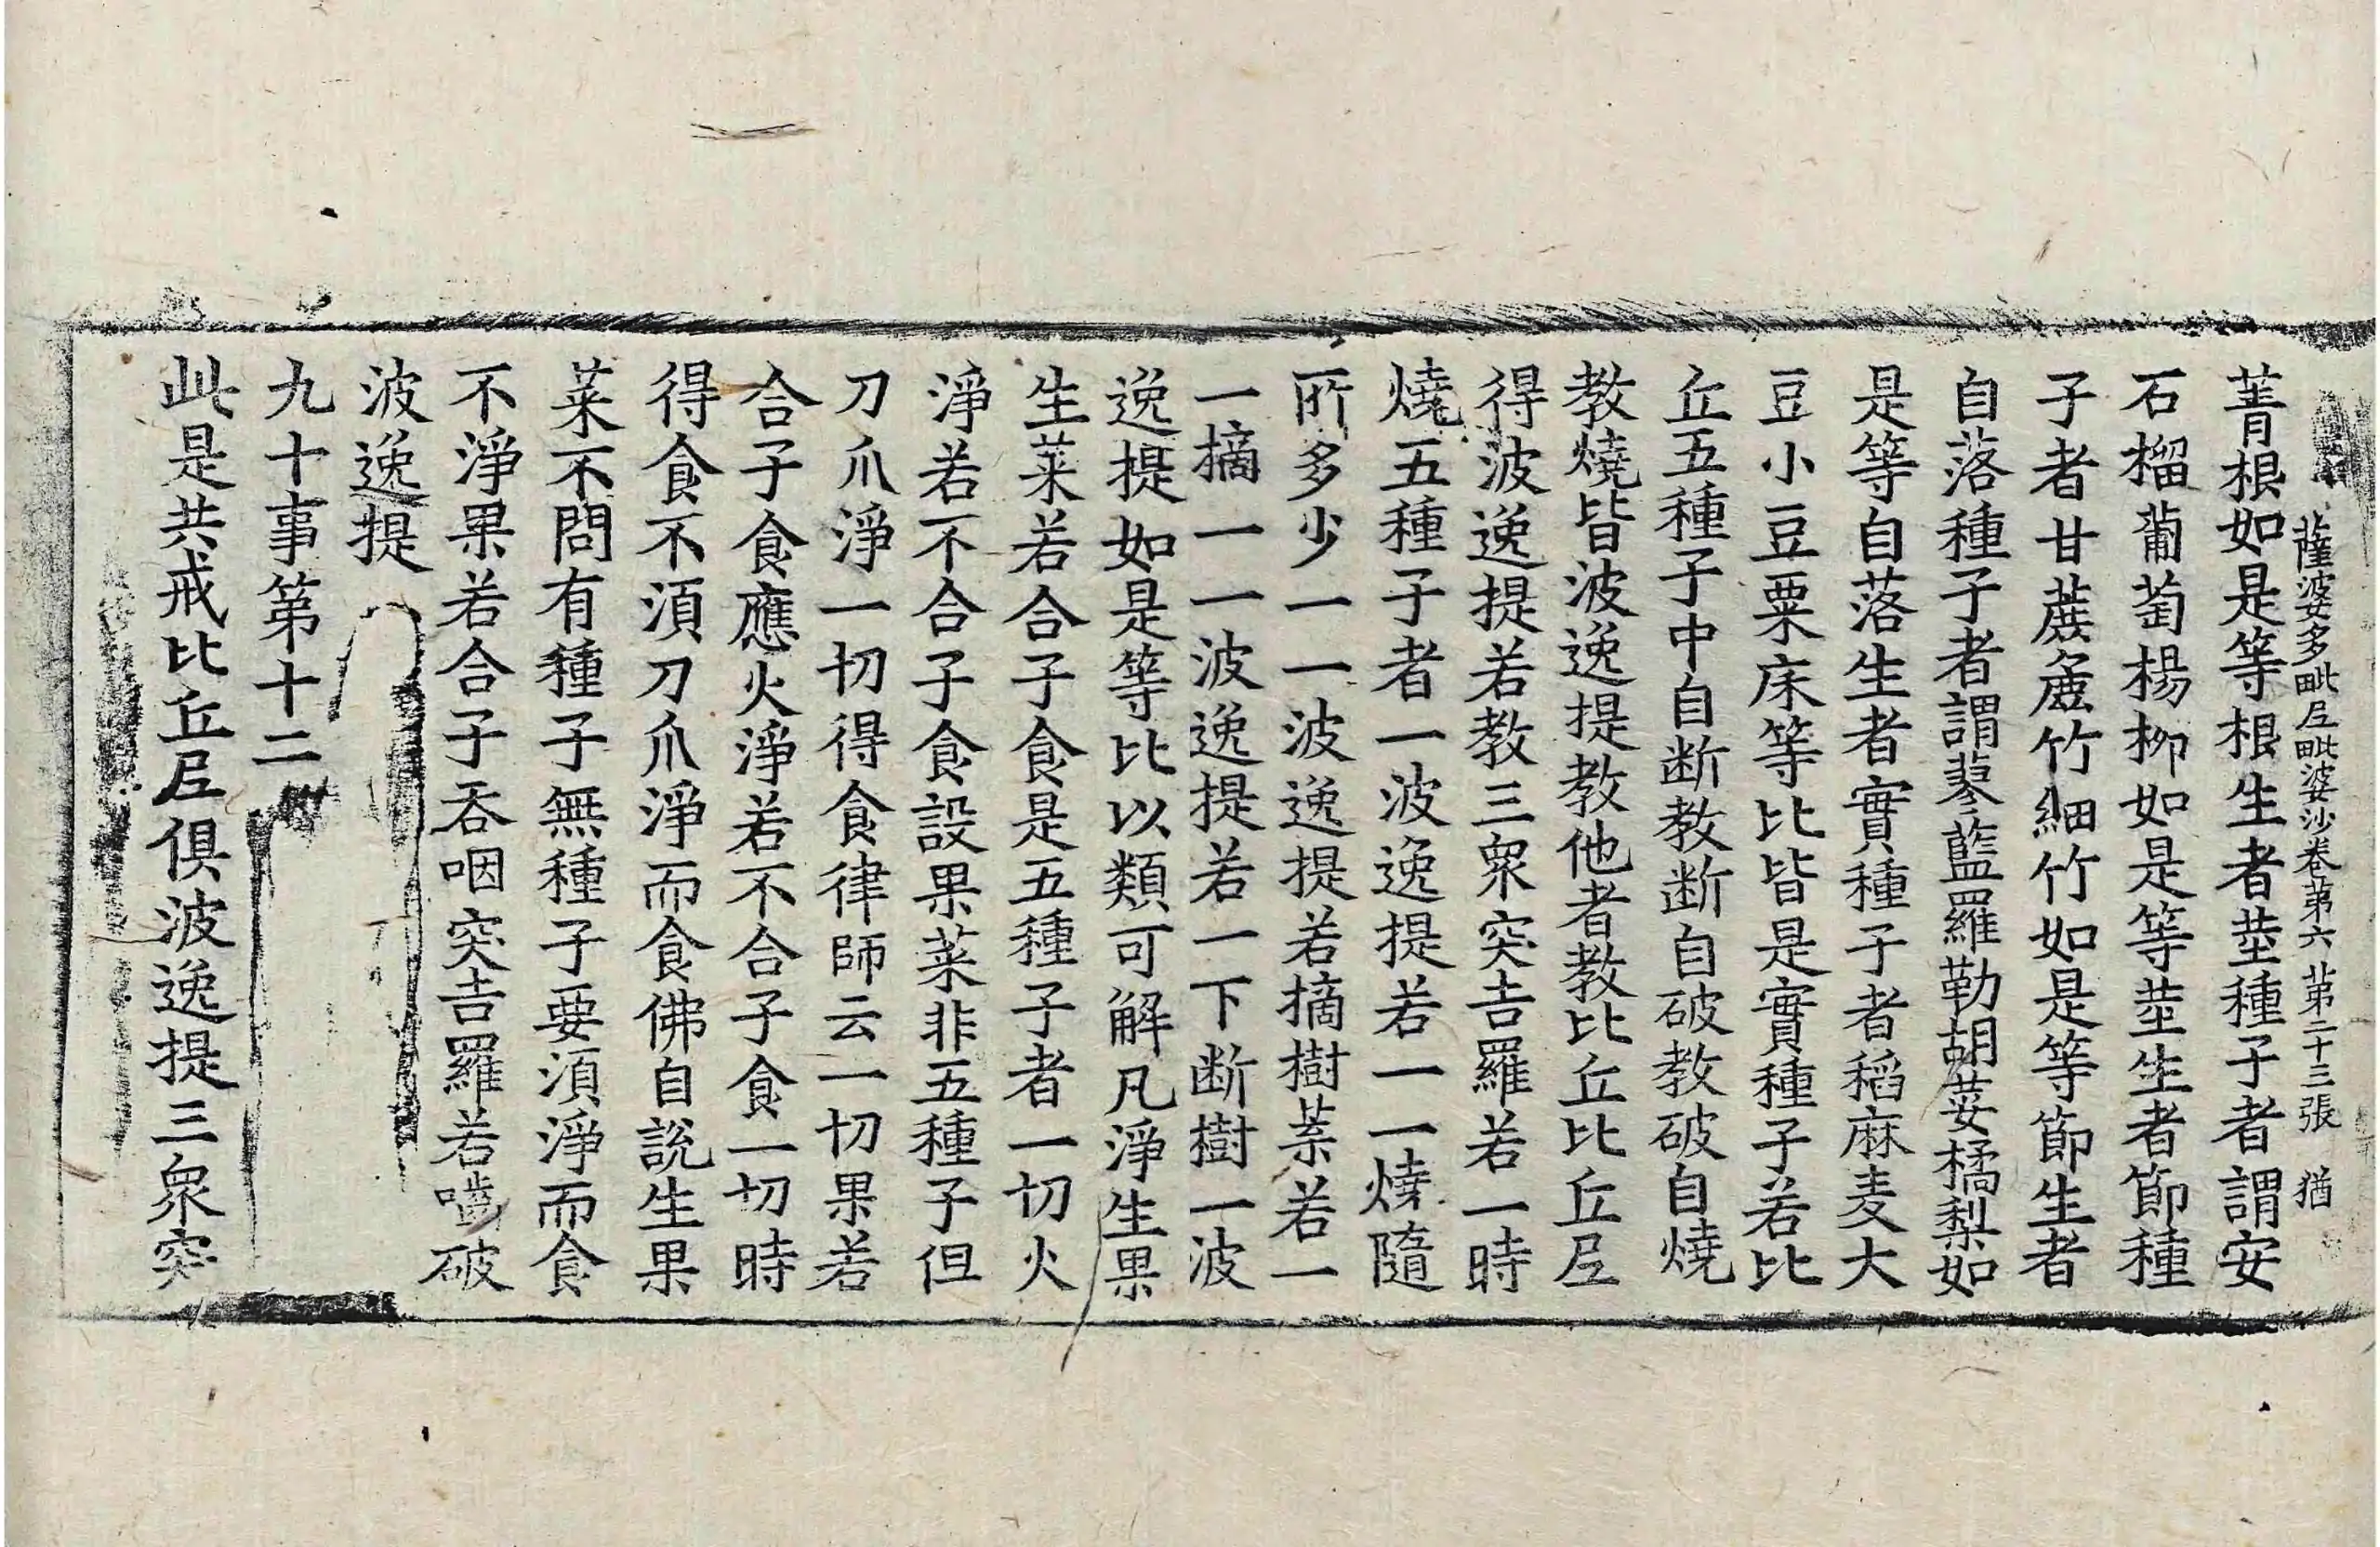 薩婆多毗尼毗婆沙卷第六 第二十三張 猶
菁根如是等根生者莖種子者謂安
石榴蒲萄楊柳如是等莖生者節種
子者甘蔗麁竹細竹如是等節生者
自落種子者謂蓼藍羅勒胡荽橘梨如
是等自落生者實種子者稻麻麦大
豆小豆粟床等比皆是實種子若比
丘五種子中自断教断自破教破自燒
教燒皆波逸提教他者教比丘比丘尼
得波逸提若教三衆突吉羅若一時
燒五種子者一波逸提若一一燒隨
所多少一一波逸提若摘樹菜若一
一摘一一波逸提若一下断樹一波
逸提如是等比以類可解凡淨生果
生菜若合子食是五種子者一切火
淨若不合子食設果菜非五種子但
刀爪淨一切得食律師云一切果若
合子食應火淨若不合子食一切時
得食不湏刀爪淨而食佛自說生果
菜不問有種子無種子要湏淨而食
不淨果若合子吞咽突吉羅若嚙破
波逸提
九十事第十二
此是共戒比丘尼俱波逸提三衆突